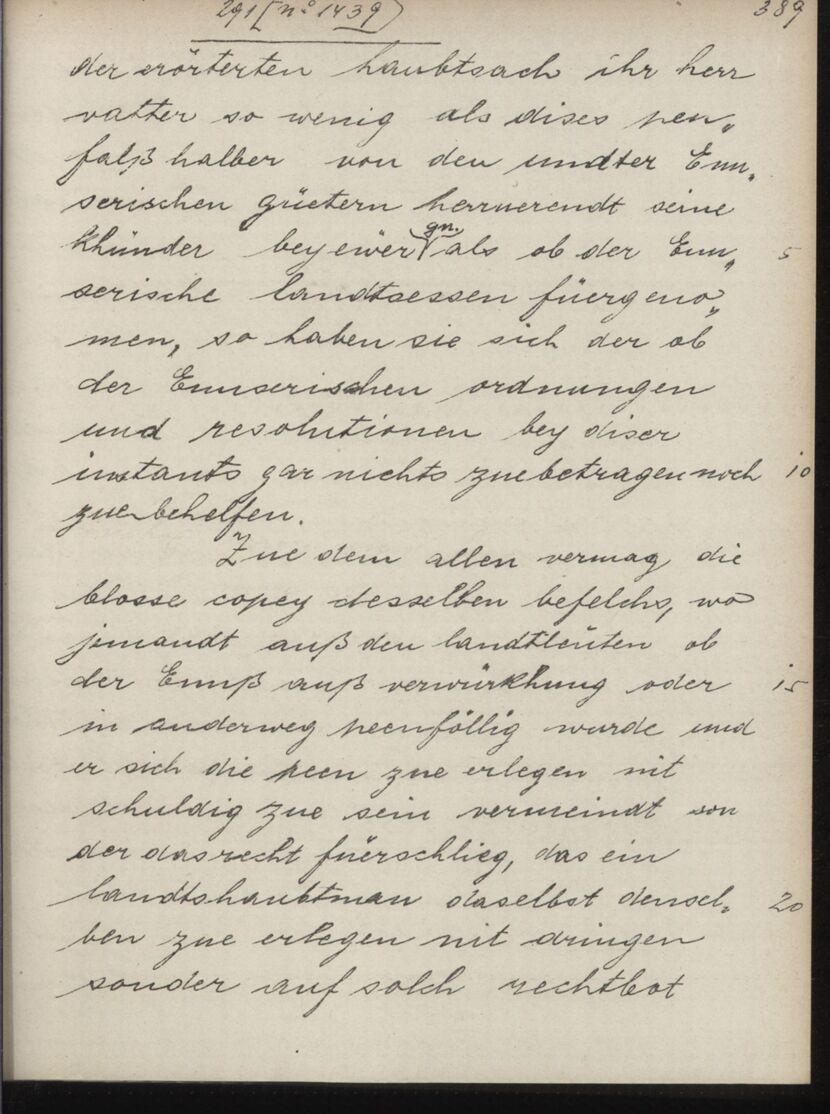 291 [n° 1439) 389
der erörterten haubtsach ihr herr
vatter so wenig als dises pen„
falß halber von den undter Enn„
serischen güetern herruerendt seine
khünder bey ewer gn. als ob der Enn„ 5
serische landtsessen füergeno„
men, so haben sie sich der ob
der Ennserischen ordnungen
und resolutionen bey diser
instants gar nichts zue betragen noch 10
zue behelfen.
Zue dem allen vermag die
blosse copey desselben befelchs, wo
jemandt auß den landtleüten ob
der Ennß auß verwürkhung oder 15
in anderweg peenföllig wurde und
er sich die peen zue erlegen nit
schuldig zue sein vermeindt son
der das recht füerschlieg, das ein
landtshaubtman daselbst densel„ 20
ben zue erlegen nit dringen
sonder auf solch rechtbot